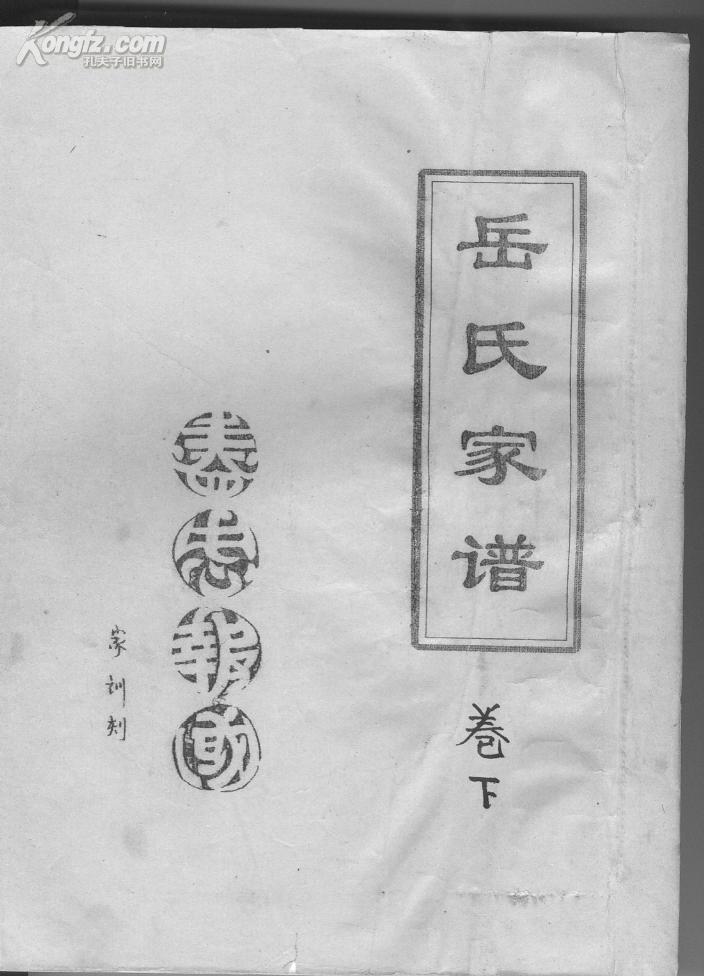 Kongfz.com
孔夫子旧书网
岳氏家谱
卷下
盡忠報國
家训刻